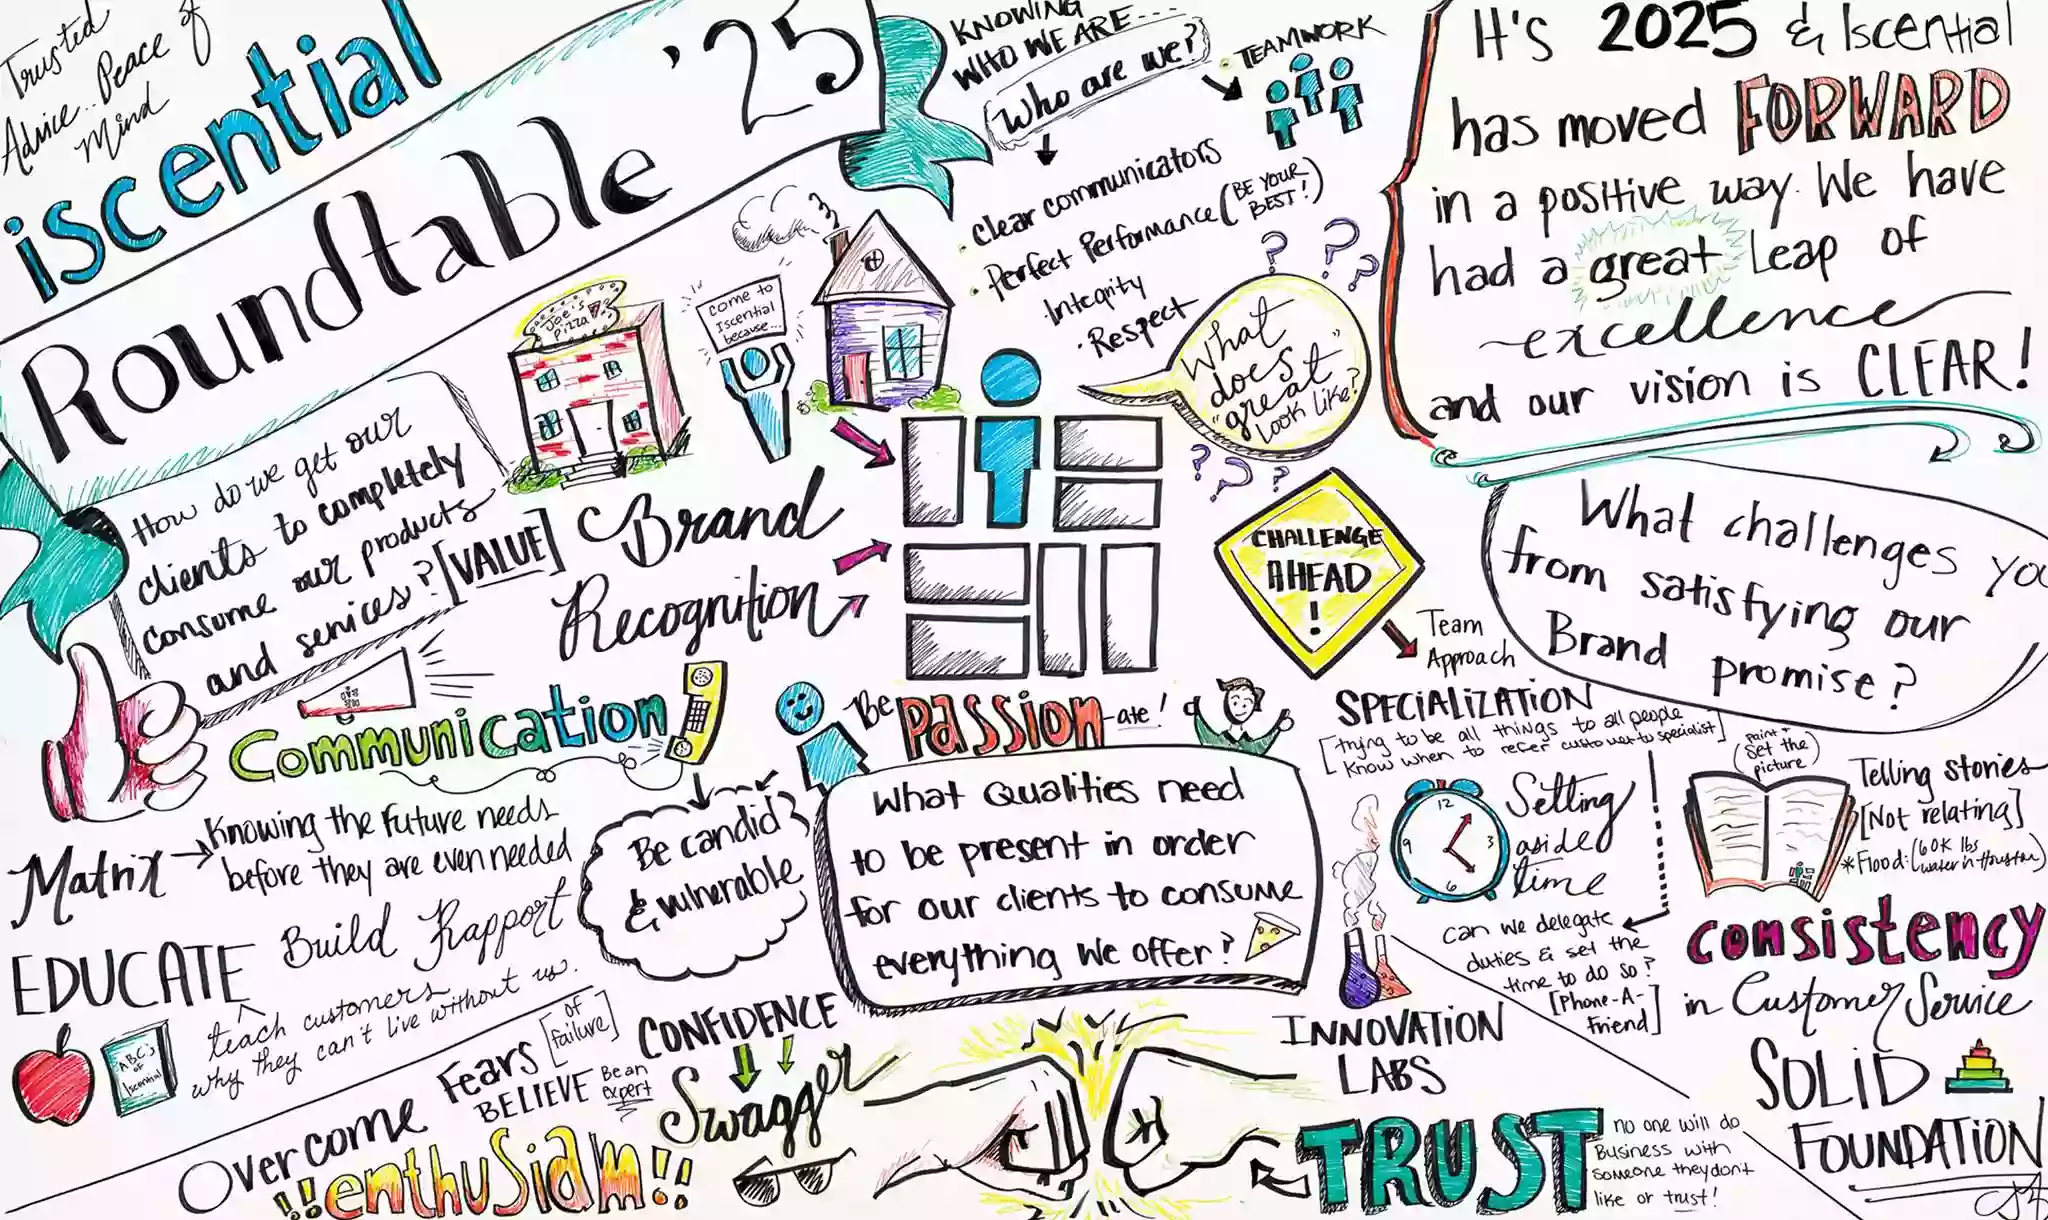 Trusted
Advice.. Peace of
Mind
iscential
Roundtable '25
KNOWING
WHO WE ARE...
Who are we?
• TEAMWORK
• Clear communicators
• Perfect Performance (BE YOUR
BEST!)
• Integrity
• Respect
It's 2025 & Iscential
has moved FORWARD
in a positive way. We have
had a great leap of
excellence
and our vision is CLEAR!
Joe's
Pizza
Come to
Iscential
because...
What
does
"great"
look like?
How do we get our
clients to completely
consume our products
and services? [VALUE]
Brand
Recognition
CHALLENGE
AHEAD
!
Team
Approach
What challenges you
from satisfying our
Brand promise?
Communication
Be Passion-ate!
SPECIALIZATION
[trying to be all things to all people
Know when to refer customer to specialist]
12
3
6
9
Setting
aside
time
can we delegate
duties & set the
time to do so?
[Phone-A-
Friend]
paint +
(set the
picture)
Telling stories
[Not relating]
*Flood: (60K lbs
water in Houston)
Matrix → Knowing the future needs
before they are even needed
Be candid
& vulnerable
What Qualities need
to be present in order
for our clients to consume
everything we offer?
EDUCATE
Build Rapport
teach customers
why they can't live without us.
ABC's
of
Iscential
Overcome Fears [of
failure]
BELIEVE Be an
expert
!!enthusiasm!!
CONFIDENCE
Swagger
INNOVATION
LABS
consistency
in Customer Service
SOLID
FOUNDATION
TRUST
no one will do
Business with
someone they dont
like or trust!